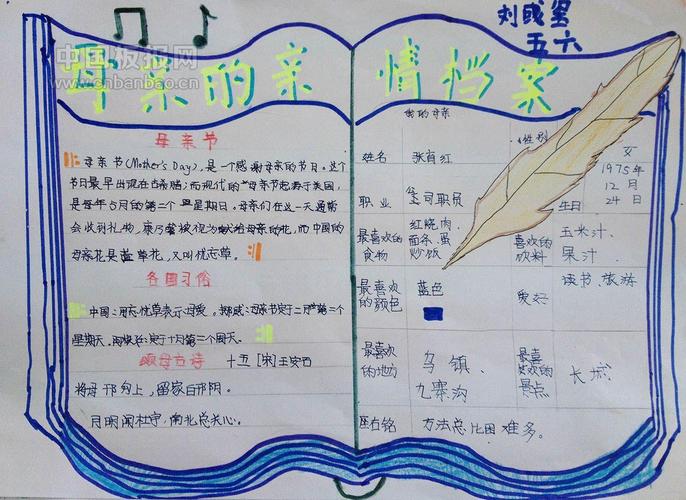 中国板报网
www.cnbanbao.cn
刘彧星
五六
母亲的亲
情档案
母亲节
母亲节(Mother's Day)，是一个感谢母亲的节日。这个
节日最早出现在古希腊；而现代的母亲节起源于美国，
是每年5月的第二个星期日。母亲们在这一天通常
会收到礼物，康乃馨被视为献给母亲的花，而中国的
母亲花是萱草花，又叫忘忧草。
各国习俗
中国：用忘忧草表示母爱。挪威：母亲节定于二月第二个
星期天。阿根廷：定于十月第二个周天。
颂母古诗
十五 [宋]王安石
将母邗沟上，留家白邗阴。
月明闻杜宇，南北总关心。
我的母亲
姓名 张育红 性别 女
职业 公司职员 生日 1975年
12月
24日
最喜欢的
食物 红烧肉、
面条、蛋
炒饭 喜欢的
饮料 玉米汁、
果汁
最喜欢
的颜色 蓝色 爱好 读书、旅游
最喜欢
的地方 乌镇、
九寨沟 最喜
欢的
景点 长城
座右铭 方法总比困难多。